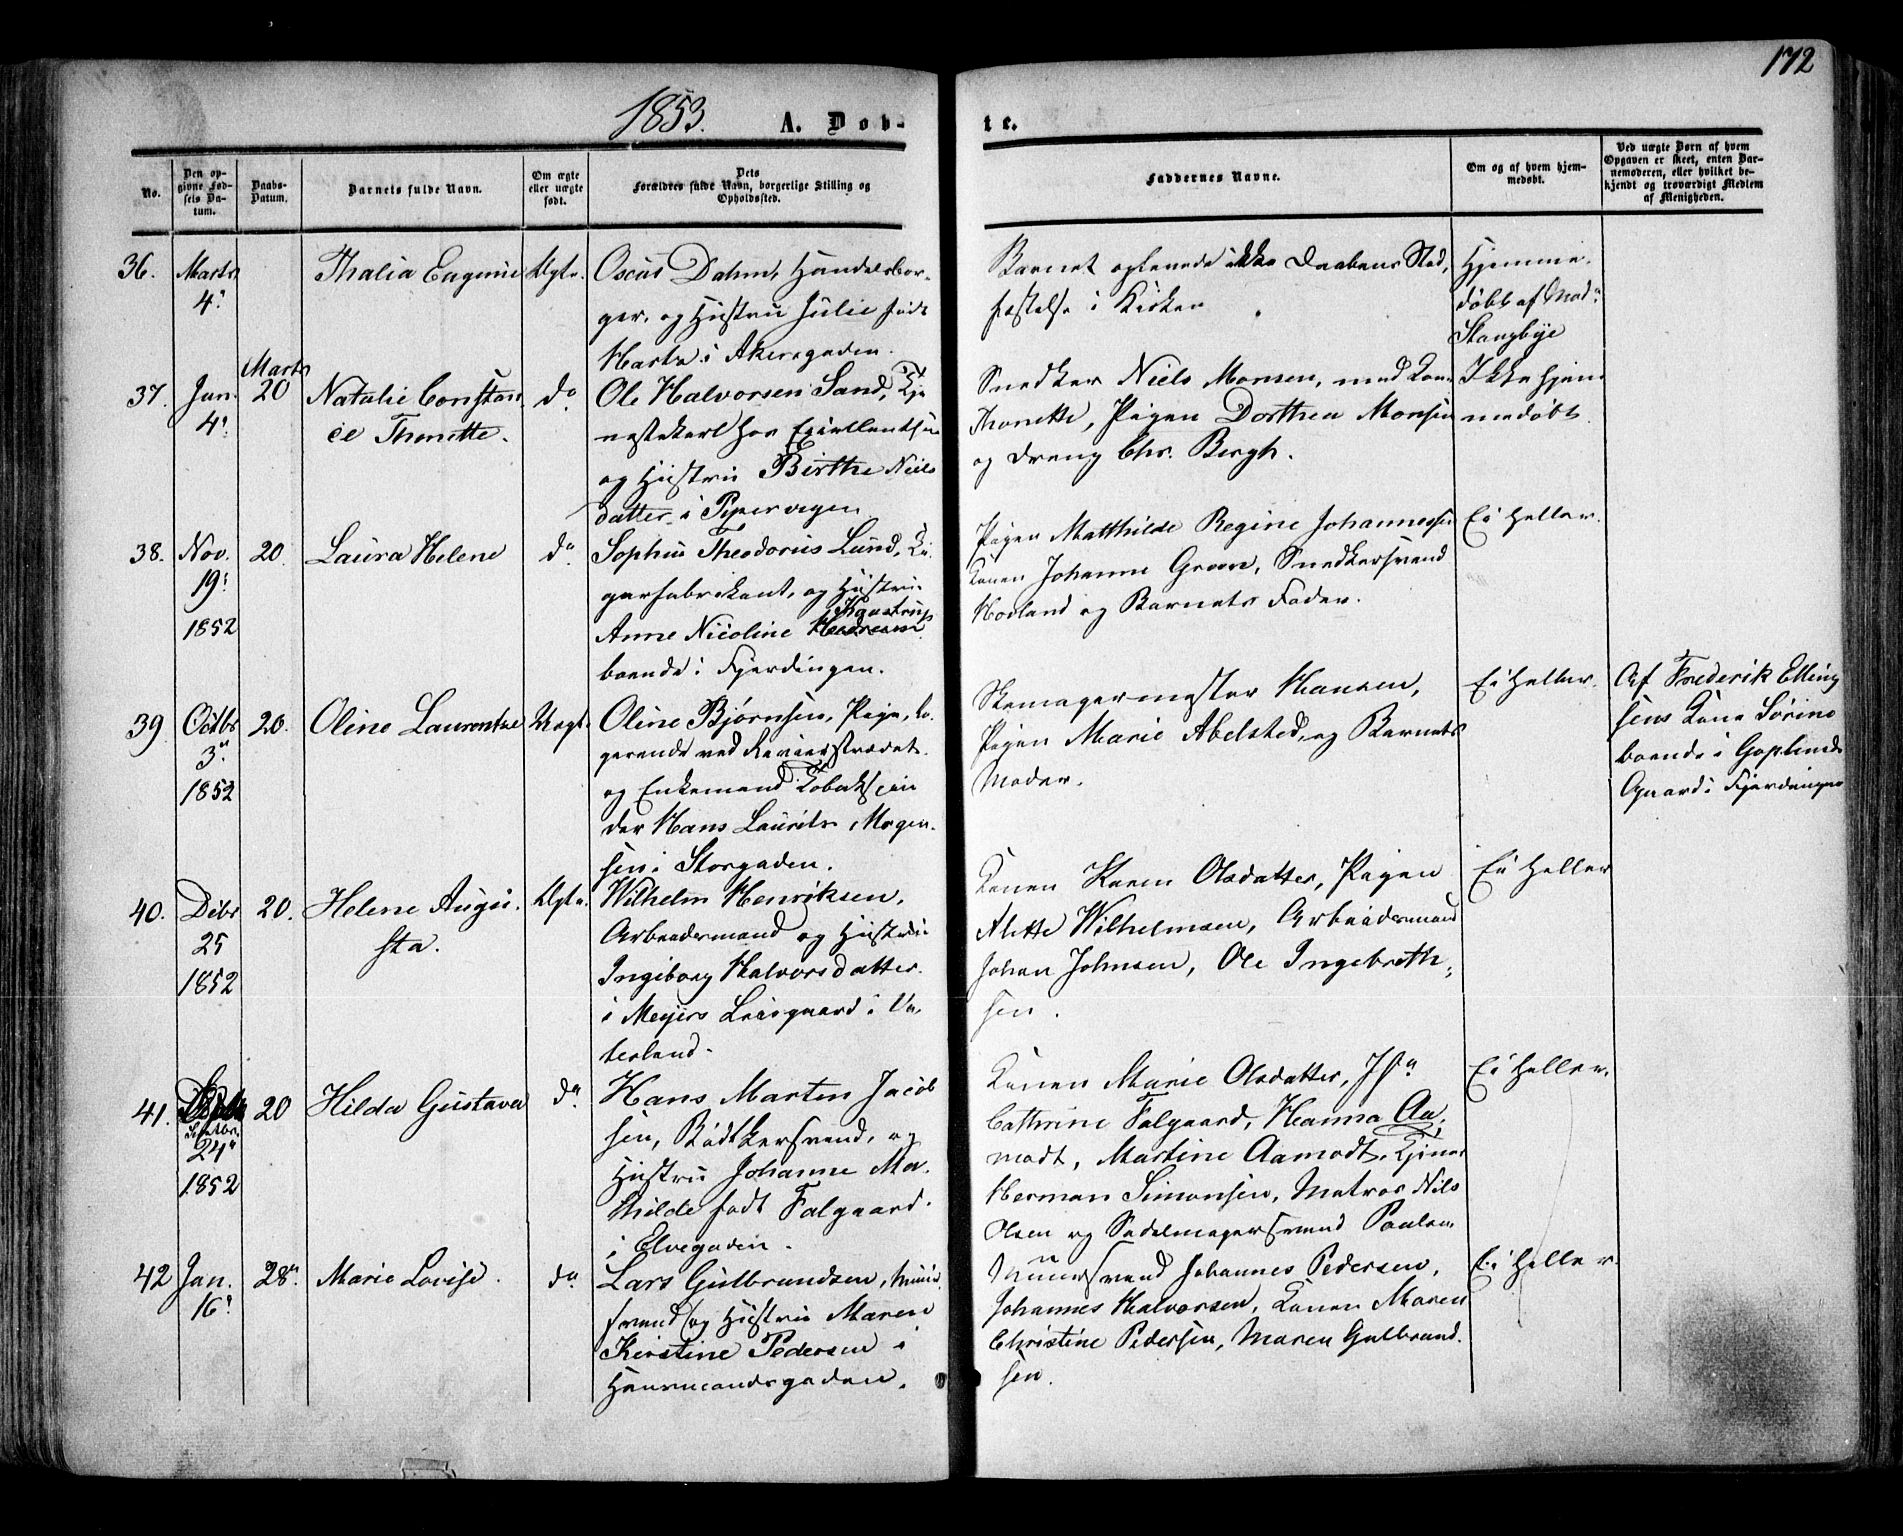 172
1853.
A. Døb-
te.
No.
Den op-
givne Fød-
sels Da-
tum.
Daabs-
Datum.
Barnets fulde Navn.
Om ægte
eller uægte
født.
Dets
Forældres fulde Navn, borgerlige Stilling og
Opholdssted.
Faddernes Navne.
Om og af hvem hjem-
medøbt.
Ved uægte Børn af hvem
Opgaven er skeet, enten Bar-
nemoderen, eller hvilket be-
kjendt og troværdigt Medlem
af Menigheden.
36.
Marts
4'
Thalia Eugenie
Ægte.
Oscar Dahm, Handelsbor-
ger, og Hustru Julie født
i Akersgaden.
Barnet oplevede ikke Daabens Stad-
fæstelse i Kirken
Hjemme-
døbt af Mad
Stangbye
37.
Jan.
4'
Marts
20
Natalie Constan
ce Thonette.
do
Ole Halvorsen Sand, Tje
nestekarl hos
og Hustru Birthe Niels
datter i Pipervigen
Snedker Niels Monsen, med Kone
Thonette, Pigen Dorthea Monsen
og Dreng Chr. Bergh.
Ikke hjem
medøbt
38.
Nov.
19'
1852
20.
Laura Helene
do
Sophus Theodorus Lund, Ci-
garfabrikant, og Hustru
Anne Nicoline
boende i Fjerdingen.
Pigen Matthilde Regine Johannessen
Konen Johanne Groen, Snedkersvend
Hovland og Barnets Fader.
Ei heller.
39.
Octbr
3'
1852
20.
Oline Laurentze
Uægt.
Oline Bjørnsen, Pige, lo-
gerende ved
og Enkemand
der Hans Laurits Mogen-
sen i Storgaden.
Skomagermester Hansen,
Pigen Marie Abelsted, og Barnets
Moder.
Ei heller.
Af Frederik Elling
sens Kone Sørine
boende i
Gaard i Fjerdingen
40.
Debr
25
1852
20.
Helene Augu-
sta.
Ægte.
Wilhelm Henriksen,
Arbeidsmand og Hustru
Ingeborg Halvorsdatter
i Meyers Løvgaard i Va-
terland.
Konen Karen Olsdatter, Pigen
Alette Wilhelmsen, Arbeidsmand
Johan Johnsen, Ole Ingebreth-
sen.
Ei heller
41.
Septbr.
24'
1852
20
Hilda Gustava
do
Hans Marten Jacob
sen, Bødtkersvend, og
Hustru Johanne Ma-
thilde født Falgaard
i Elvegaden.
Konen Marie Olsdatter, Jfr
Cathrine Falgaard, Hanna Aa-
modt, Martine Aamodt,
Herman Simonsen, Matros Nils
Olsen og Sadelmagersvend Paulsen
Ei heller.
42
Jan.
16'
28'
Marie Lovise.
do
Lars Gulbrandsen, Muur-
svend og Hustru Maren
Kirstine Pedersen i
Hausmandsgaden.
Muursvend Johannes Pedersen,
Johannes Halvorsen, Konen Maren
Christine Pedersen, Maren Gulbrand-
sen.
Ei heller.